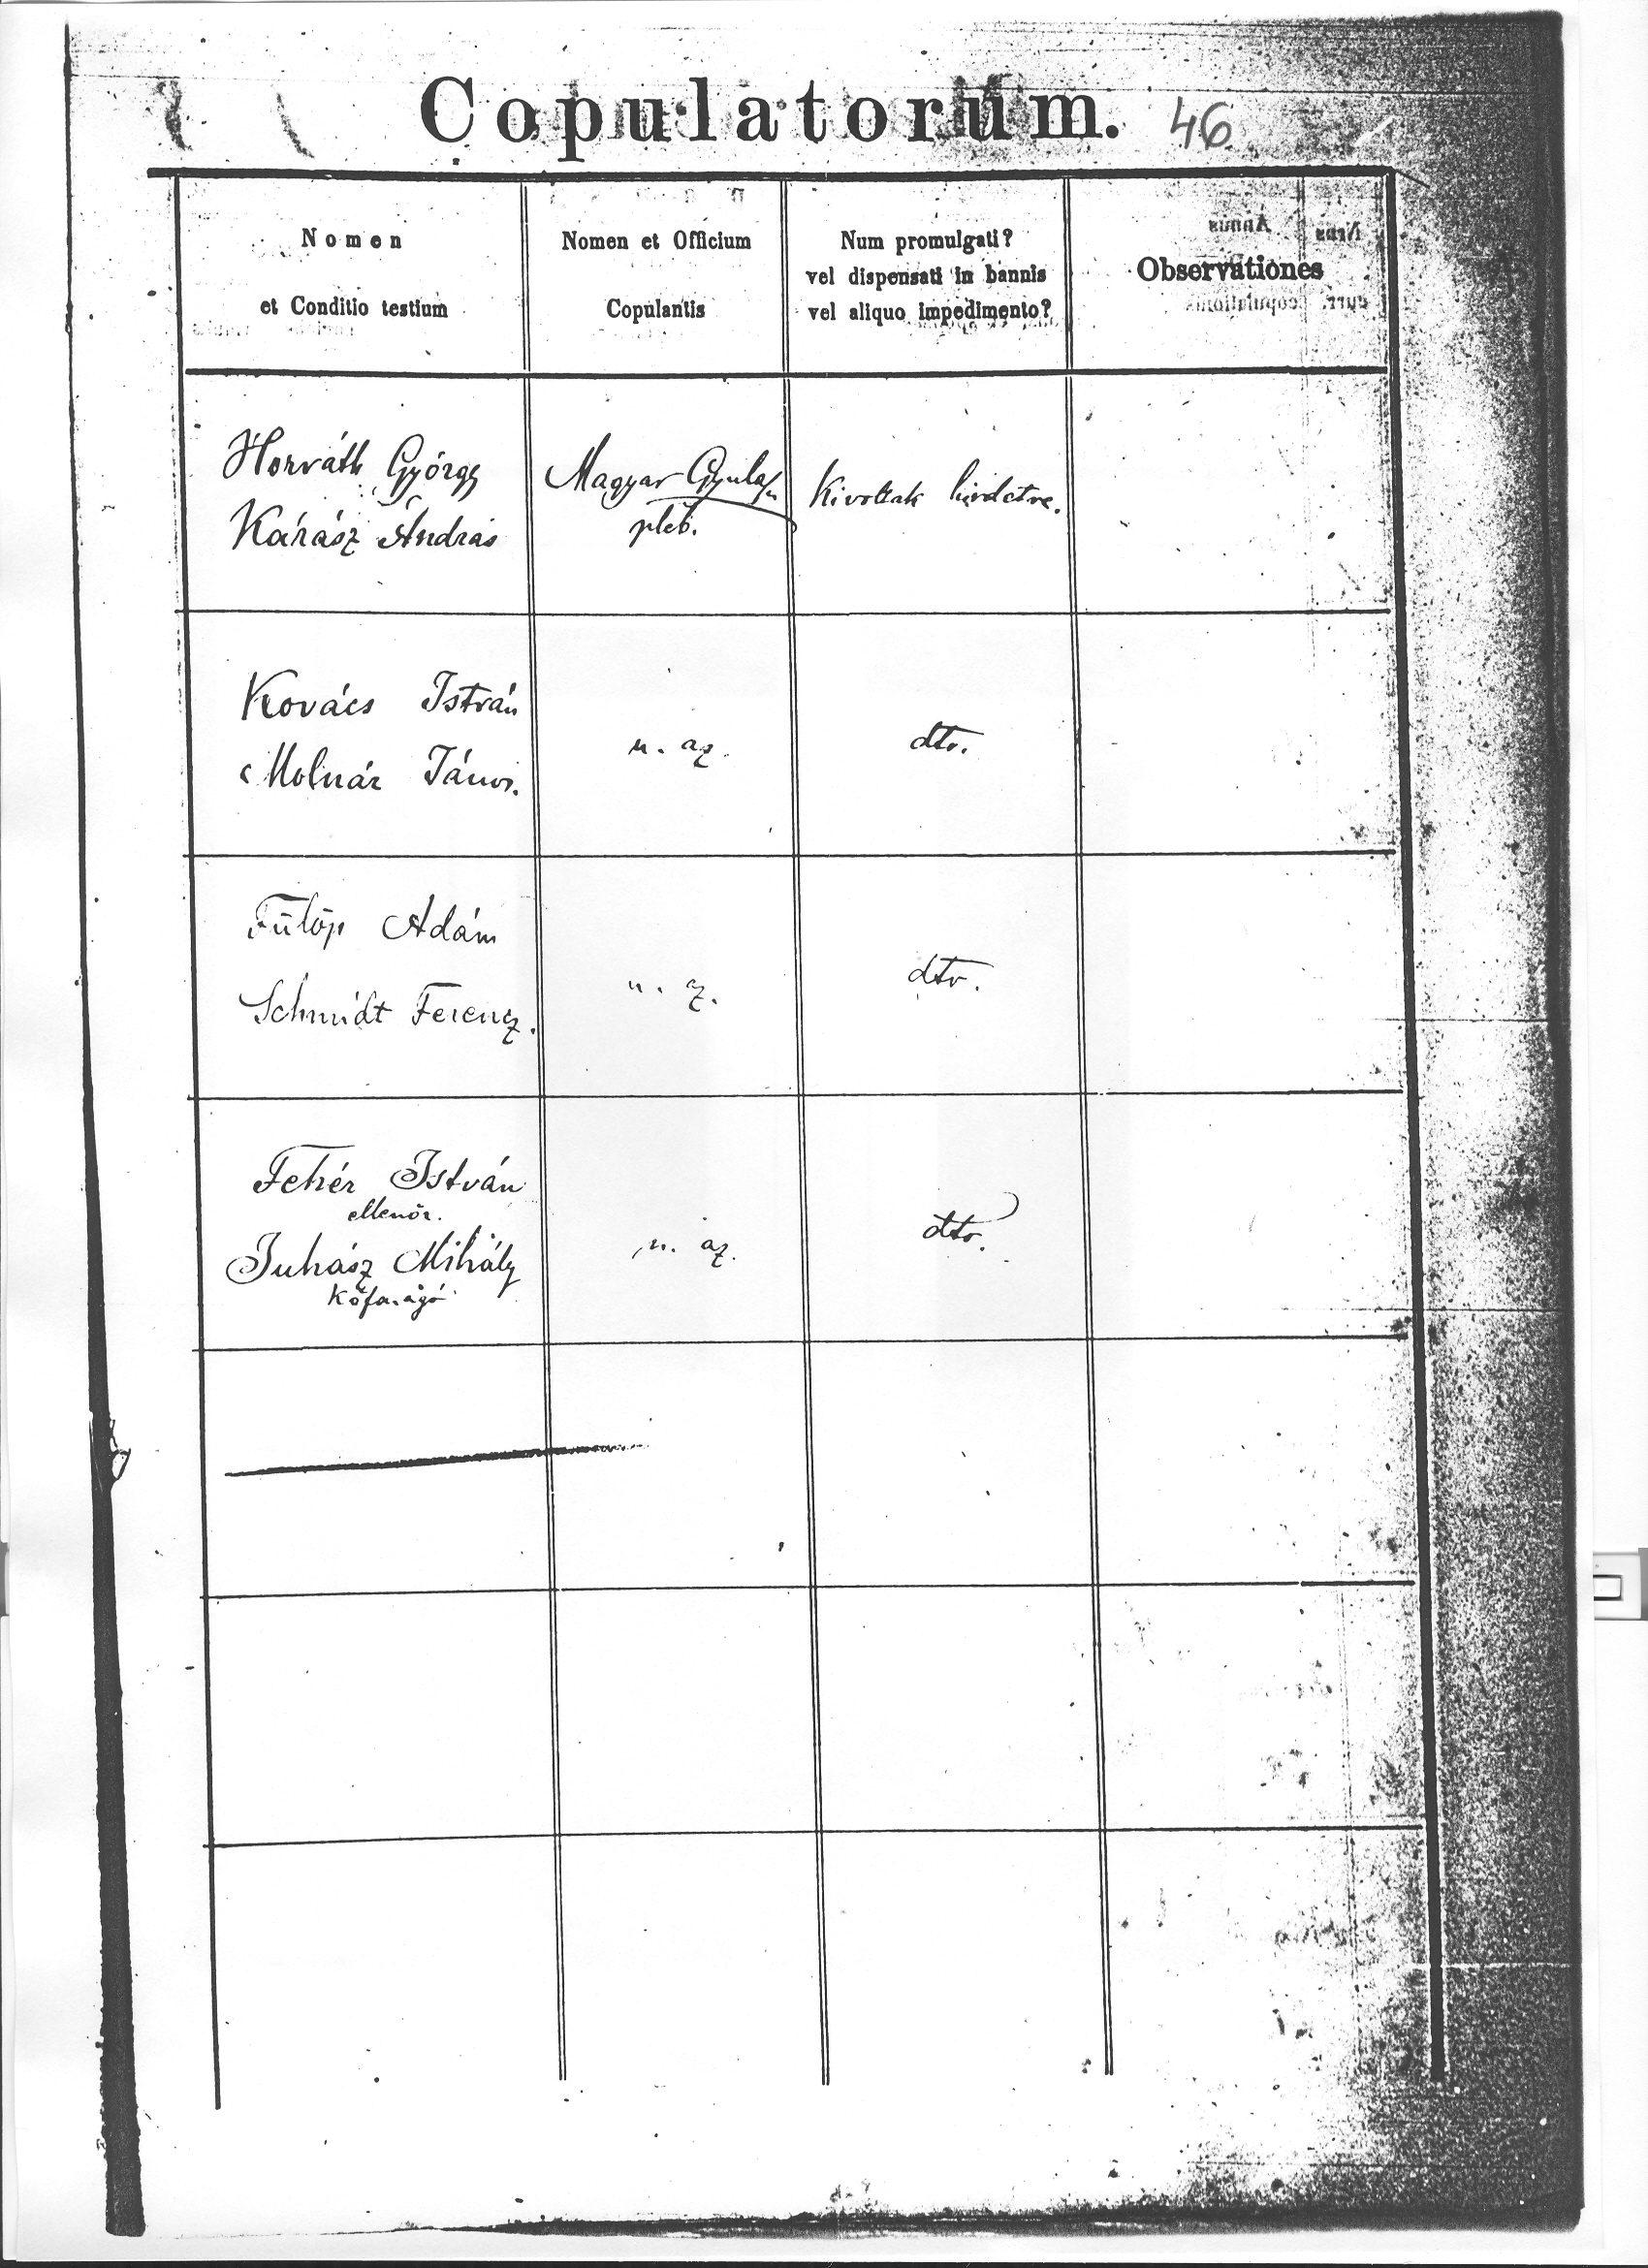 Copulatorum. 46
Nomen
et Conditio testium
Nomen et Officium
Copulantis
Num promulgati?
vel dispensati in bannis
vel aliquo impedimento?
Observationes
Horváth György
Kárász András
Magyar Gyula
pleb.
Kivoltak hirdetve.
Kovács István
Molnár János.
u. az.
dto.
Fülöp Ádám
Schmidt Ferencz.
u. z.
dto.
Fehér István
ellenőr.
Juhász Mihály
Kőfaragó
u. az.
dto.